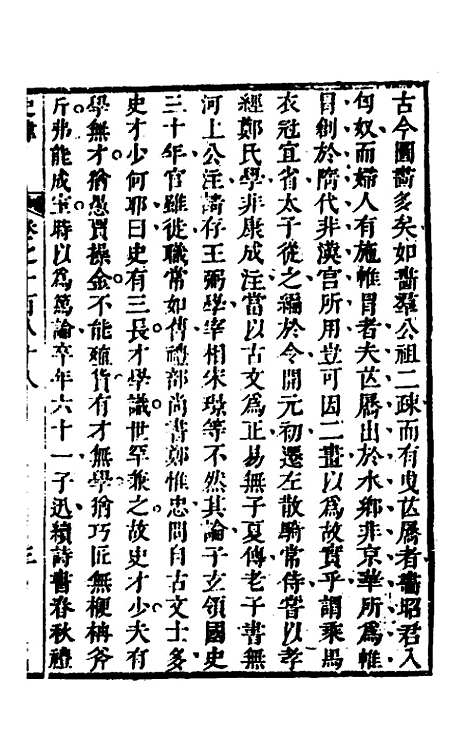 古今圖畫多矣如畫羣公祖二疎而有曳芒屩者畫昭君入
匈奴而婦人有施帷冒者夫芒屩出於水鄉非京華所爲帷
冒創於隋代非漢宮所用豈可因二畫以爲故實乎謂乘馬
衣冠宜省太子從之編於令開元初遷左散騎常侍嘗以孝
經鄭氏學非康成注當以古文爲正易無子夏傳老子書無
河上公注請存王弼學宰相宋璟等不然其論子玄領國史
三十年官雖徙職常如舊禮部尚書鄭惟忠問自古文士多
史才少何耶曰史有三長才學識世罕兼之故史才少夫有
學無才猶愚賈操金不能殖貨有才無學猶巧匠無楩柟斧
斤弗能成室時以爲篤論卒年六十一子迅續詩書春秋禮
史緯
卷之一百八十八
三